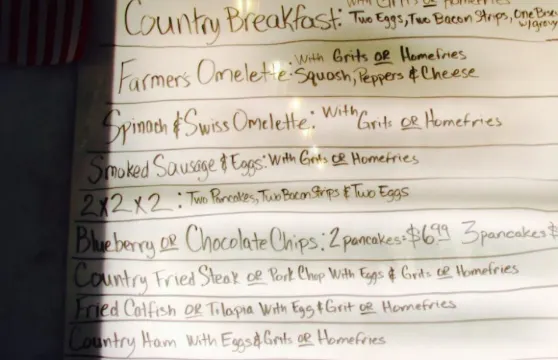 With Grits or Homefries
Country Breakfast: Two Eggs, Two Bacon Strips, One
w/gravy
With Grits OR Homefries
Farmer's Omelette: Squash, Peppers & Cheese
Spinach & Swiss Omelette: With Grits OR Homefries
Smoked Sausage & Eggs: With Grits OR Homefries
2x2x2: Two Pancakes, Two Bacon Strips & Two Eggs
Blueberry OR Chocolate Chips: 2 pancakes=$6.99 3 pancakes $
Country Fried Steak OR Pork Chop With Eggs & Grits OR Homefries
Fried Catfish OR Tilapia With Egg & Grit OR Homefries
Country Ham With Eggs & Grits OR Homefries